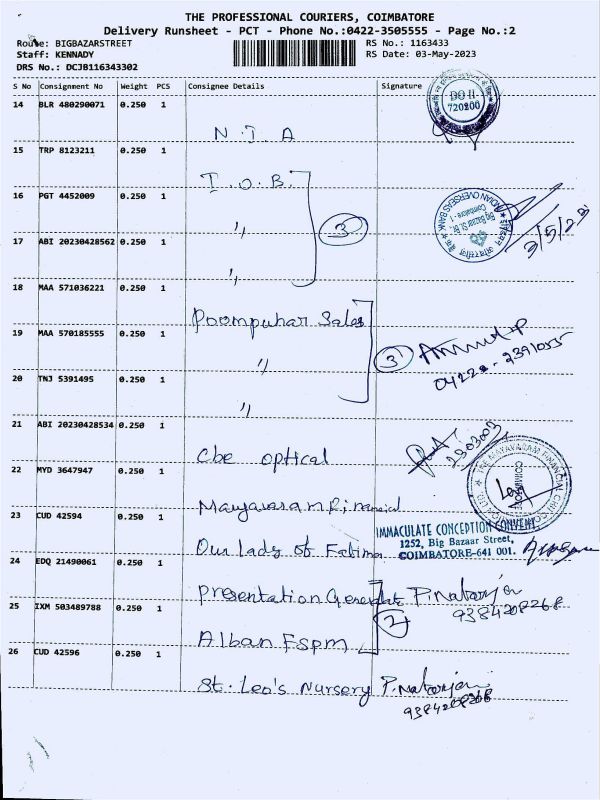 THE PROFESSIONAL COURIERS, COIMBATORE
Delivery Runsheet - PCT - Phone No.:0422-3505555 - Page No.:2
Route: BIGBAZARSTREET
Staff: KENNADY
DRS No.: DCJB116343302
RS No.: 1163433
RS Date: 03-May-2023
S No Consignment No Weight PCS Consignee Details Signature
14 BLR 480290071 0.250 1
DO II
720200
N.I.A
15 TRP 8123211 0.250 1
I.O.B.
16 PGT 4452009 0.250 1
,,
3
INDIAN OVERSEAS BANK
Big Bazaar St. Br.
Coimbatore - 1
3/5/23
17 ABI 20230428562 0.250 1
,,
18 MAA 571036221 0.250 1
Poompuhar Sales
19 MAA 570185555 0.250 1
,,
3
0422 - 2391055
20 TNJ 5391495 0.250 1
,,
21 ABI 20230428534 0.250 1
Cbe optical
2303003
22 MYD 3647947 0.250 1
Mayavaram Financial
COIMBATORE
23 CUD 42594 0.250 1
Our lady of Fatima
IMMACULATE CONCEPTION CONVENT,
1252, Big Bazaar Street,
COIMBATORE-641 001.
24 EDQ 21490061 0.250 1
Presentation
P.Natarajan
9384208268
25 IXM 503489788 0.250 1
2
Alban FSPM
26 CUD 42596 0.250 1
St. Leo's Nursery
P.Natarajan
9384208268